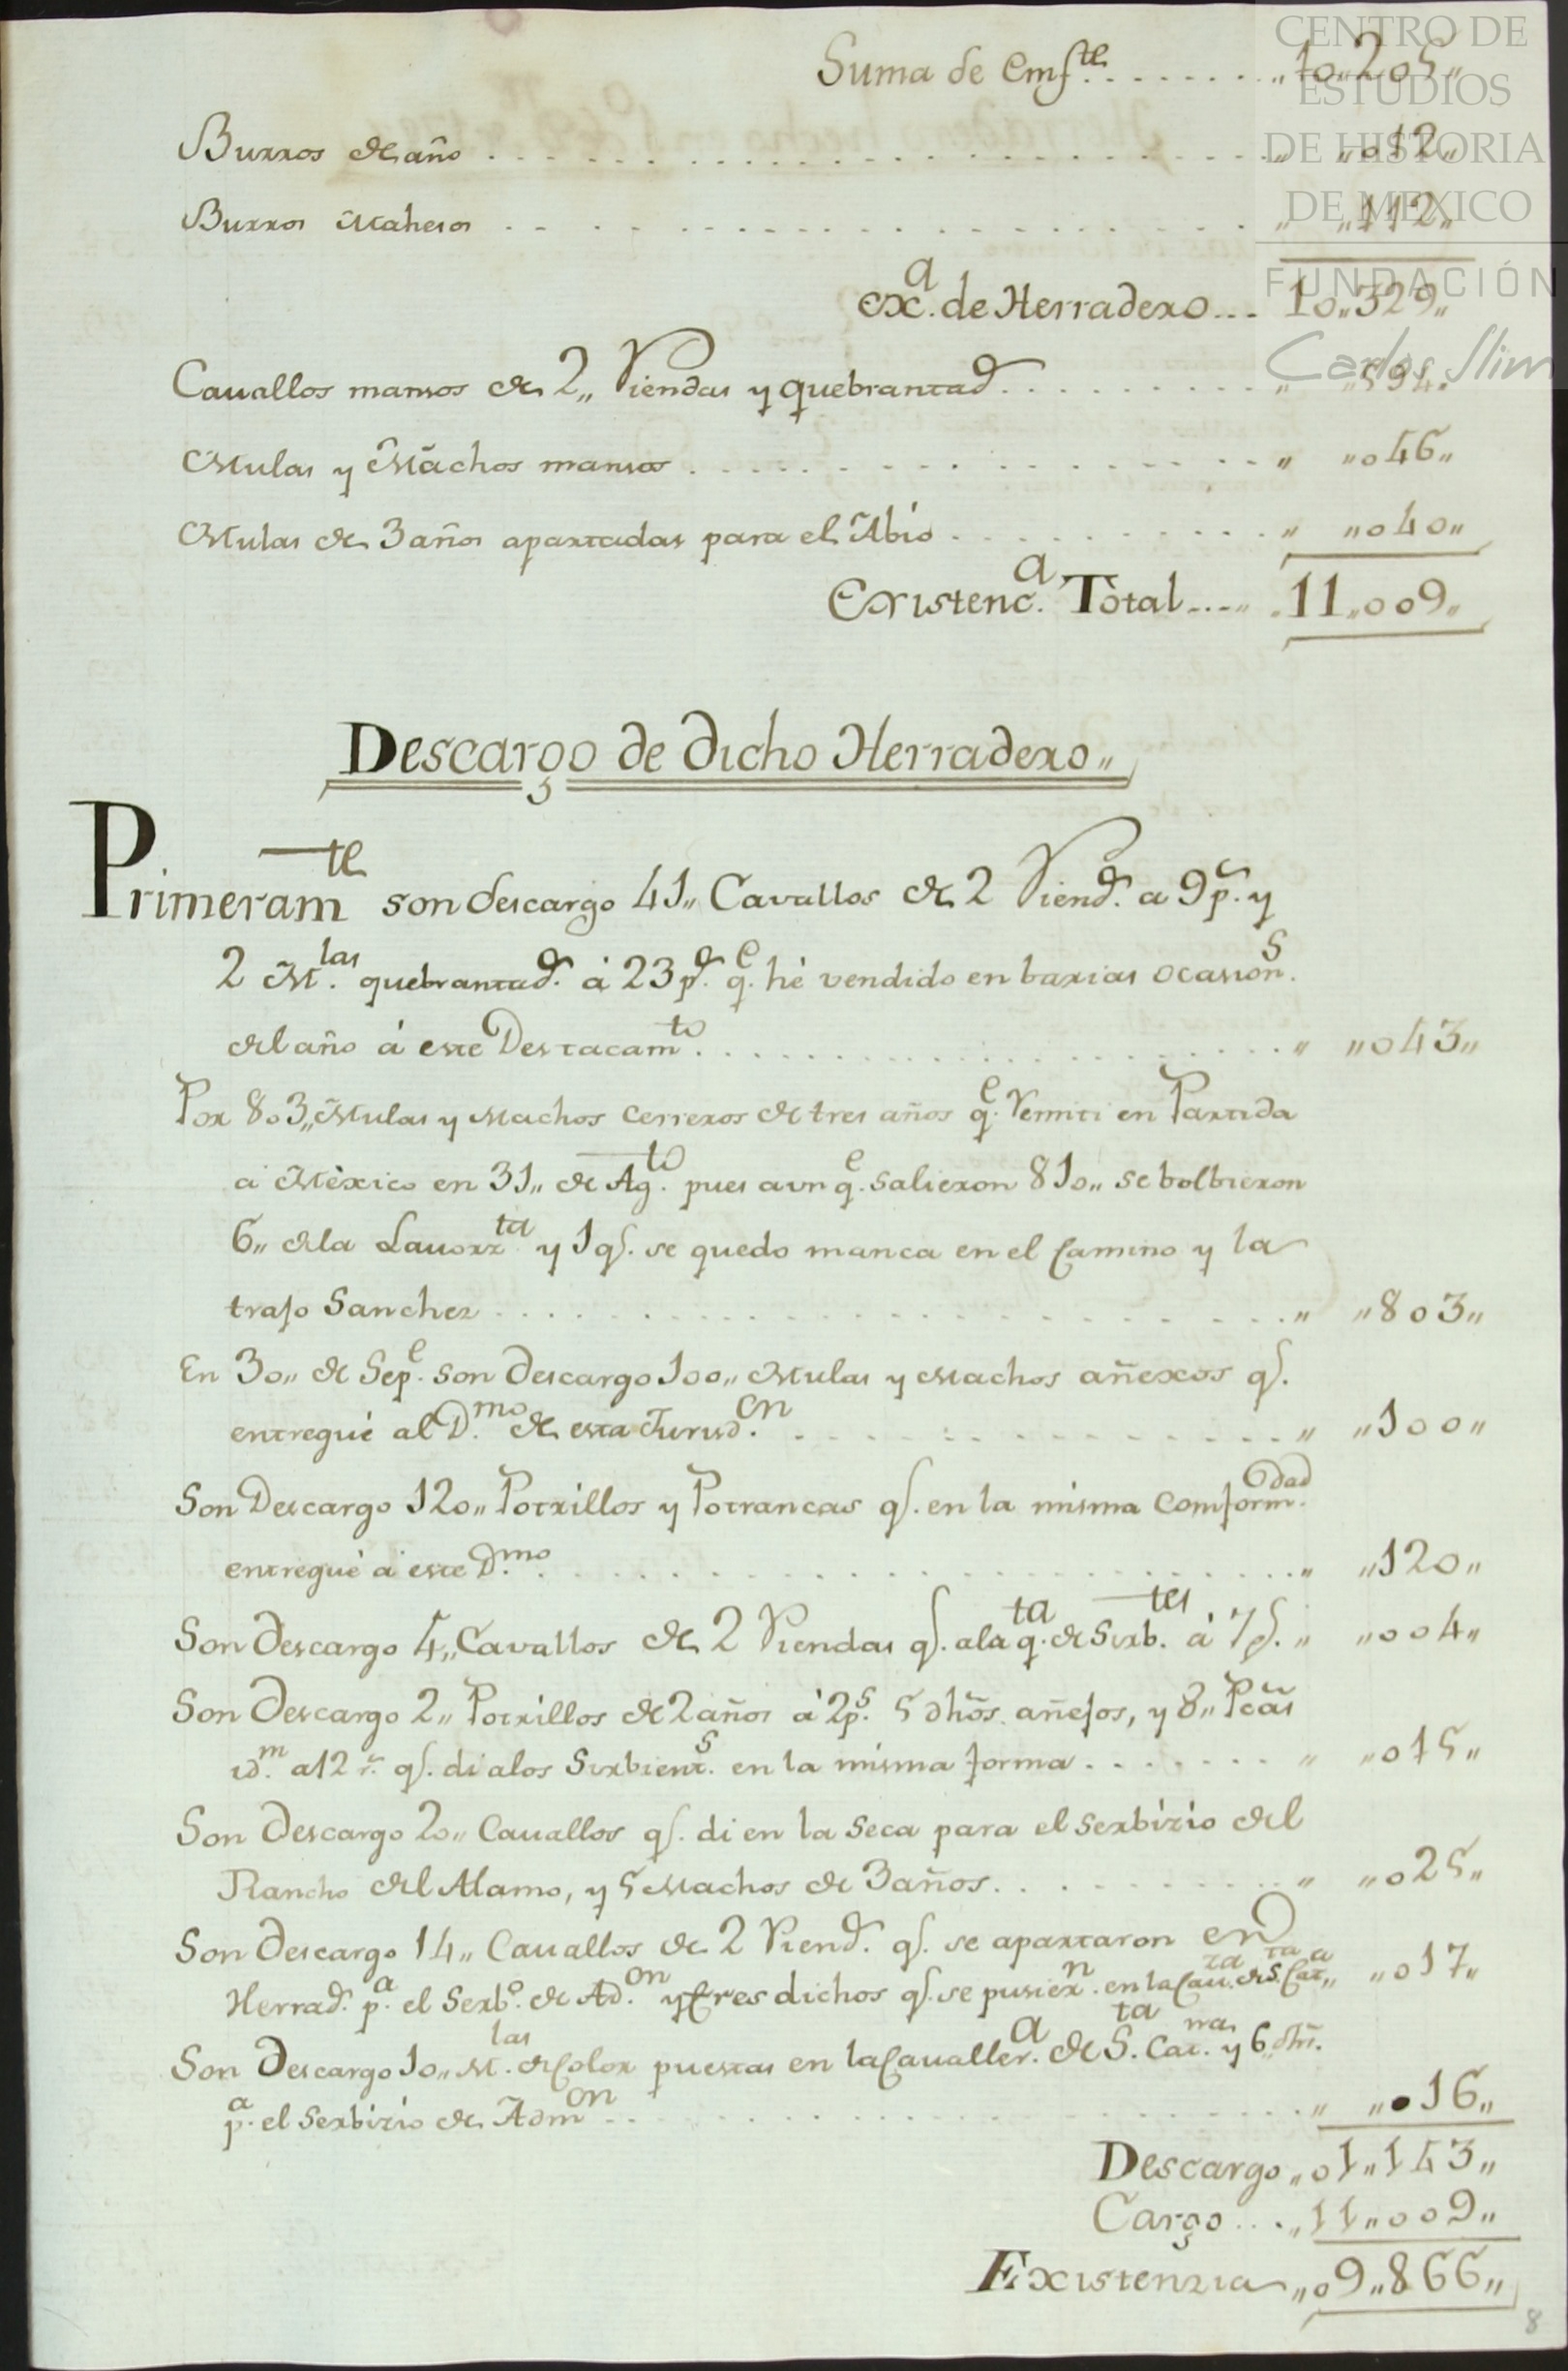 Suma de Emf.te ........ „10„205„
Burros de año ........ „ „012„
Burros Maheros ........ „ „112„
Ex.a de Herradero... 10„329„
Cauallos mansos de 2„ Riendas y quebrantad.s ........ „ „594„
Mulas y Machos mansos ........ „ „046„
Mulas de 3 años apartadas para el Abio ........ „ „040„
Existenc.a Total....„ .11„009„
Descargo de dicho Herradero„
Primeram.te son descargo 41„ Cavallos de 2 Riend.s a 9 p.s y
2 M.las quebrantad.s á 23 p.s q.e hé vendido en barias ocasion.s
del año á este Destacam.to ........ „ „043„
Por 803„ Mulas y Machos cerreros de tres años q.e Remiti en Partida
a México en 31„ de Ag.to pues aun q.e salieron 810„ se bolbieron
6„ de la Lauorz.ta y 1 q.e se quedo manca en el Camino y la
trajo Sanchez ........ „ „803„
En 30„ de Sep.e son descargo 100„ Mulas y Machos añexos q.e
entregué al D.mo de esta Jurisd.on ........ „ „100„
Son Descargo 120„ Potrillos y Potrancas q.e en la misma comform.dad
entregué a este D.mo ........ „ „120„
Son descargo 4„ Cavallos de 2 Riendas q.e a la q.ta de Sirb.tes á 7 p.s „ „004„
Son descargo 2„ Potrillos de 2 años á 2 p.s 5 dhos. añejos, y 8„ Pcas
id.m a 12 r.s q.e di a los Sirbient.s en la misma forma ........ „ „015„
Son descargo 20„ Cauallos q.e di en la seca para el serbizio del
Rancho del Alamo, y 5 Machos de 3 años ........ „ „025„
Son descargo 14„ Cauallos de 2 Riend.s q.e se apartaron en
Herrad.o p.a el serb.o de Ad.on y tres dichos q.e se pusier.n en la Cau.za de S.ta Cat.a„ „017„
Son descargo 10„ M.las de Color puestas en la Caualler.a de S.ta Cat.na y 6 dhs.
p.a el serbizio de Adm.on ........ „ „016„
Descargo„01„143„
Cargo ...„11„009„
Existenzia„09„866„
8
CENTRO DE
ESTUDIOS
DE HISTORIA
DE MÉXICO
FUNDACIÓN
Carlos Slim